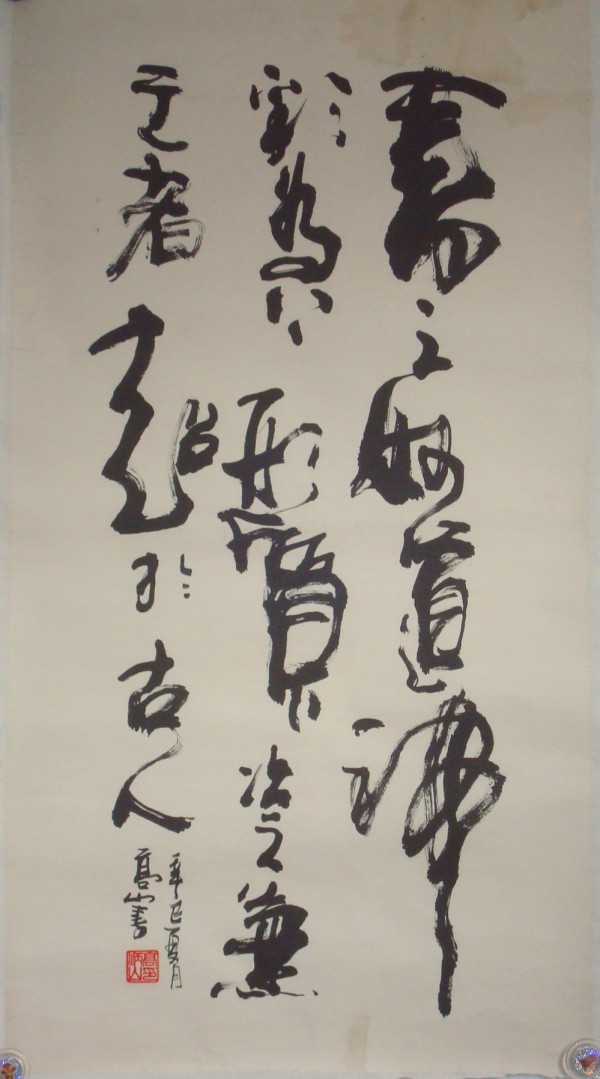 書之妙道神
彩為上形質次之兼
之者超於古人
辛巳夏月
高山書